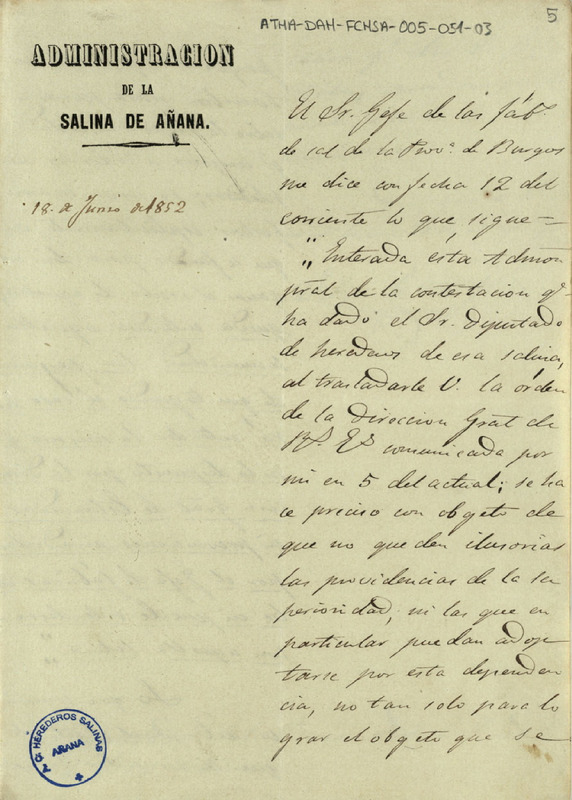 ATHA-DAH-FCHSA-005-051-03
5
ADMINISTRACION
DE LA
SALINA DE AÑANA.
18. de Junio de 1852
El Sr. Gefe de las fáb.s
de sal de la Prov.a de Burgos
me dice con fecha 12 del
corriente lo que sigue=
„Enterada ésta Admon
pral de la contestacion qe
ha dado el Sr. Diputado
de herederos de esa salina,
al trasladarle V. la órden
de la Direccion Gral de
R.s E.s comunicada por
mi en 5 del actual; se ha
ce preciso con obgeto de
que no queden ilusorias
las providencias de la su
perioridad, ni las que en
particular puedan adop
tarse por esta dependen
cia, no tan solo para lo
grar el obgeto que se
A. Gª HEREDEROS SALINAS
AÑANA